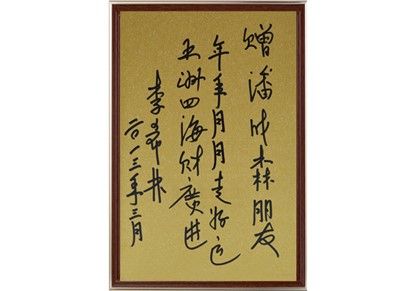 赠潘成森朋友
年年月月走好运
五洲四海财廣进
李
二〇一三年三月